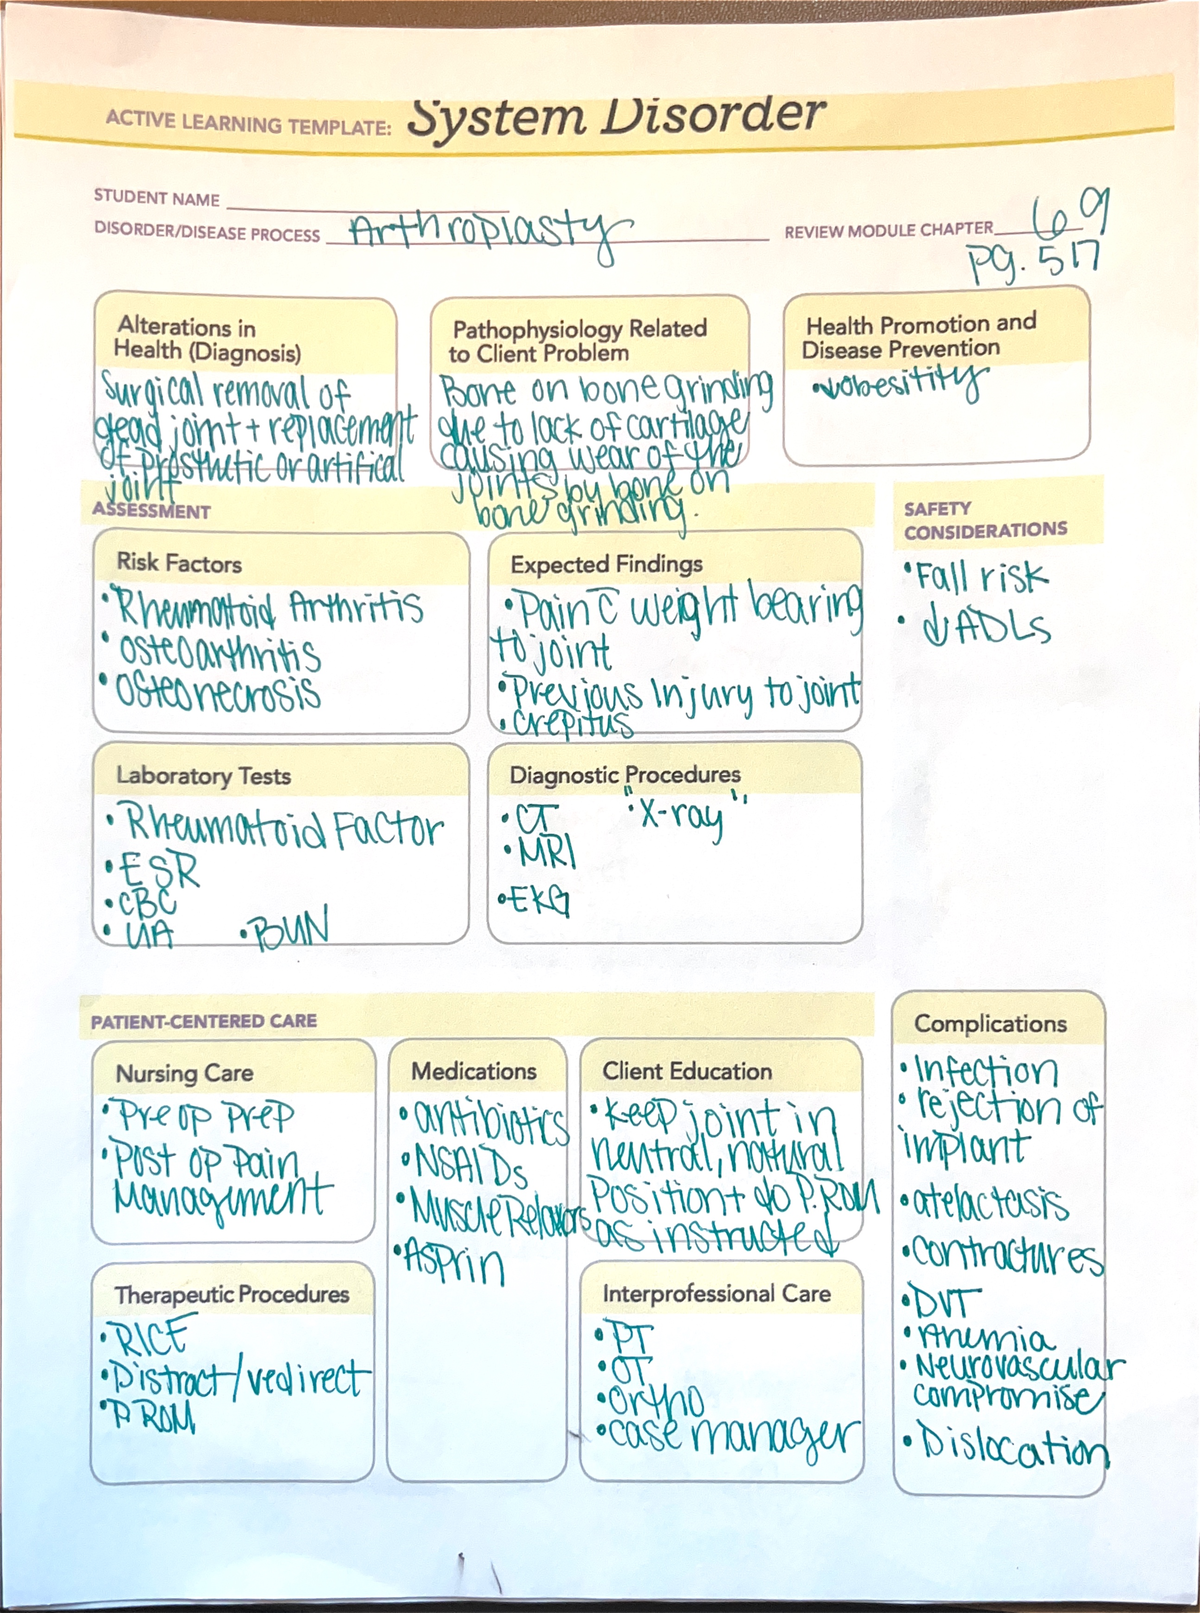 ACTIVE LEARNING TEMPLATE: System Disorder
STUDENT NAME
DISORDER/DISEASE PROCESS Arthroplasty
REVIEW MODULE CHAPTER 69
pg. 517
Alterations in
Health (Diagnosis)
Surgical removal of
dead joint + replacement
of prosthetic or artifical
joint
Pathophysiology Related
to Client Problem
Bone on bone grinding
due to lack of cartilage
causing wear of the
joints by bone on
bone grinding.
Health Promotion and
Disease Prevention
• ↓obesitity
ASSESSMENT
SAFETY
CONSIDERATIONS
• Fall risk
• ↓ADLs
Risk Factors
• Rheumatoid Arthritis
• osteoarthritis
• osteonecrosis
Expected Findings
• Pain c̄ weight bearing
to joint
• Previous Injury to joint
• crepitus
Laboratory Tests
• Rheumatoid Factor
• ESR
• CBC
• UA • BUN
Diagnostic Procedures
• CT "• X-ray"
• MRI
• EKG
PATIENT-CENTERED CARE
Nursing Care
• Pre op prep
• Post op pain
Management
Medications
• antibiotics
• NSAIDs
• Muscle Relaxors
• Asprin
Client Education
• Keep joint in
neutral, natural
position + do P.ROM
as instructed
Therapeutic Procedures
• RICE
• Distract/redirect
• P ROM
Interprofessional Care
• PT
• OT
• ortho
• case manager
Complications
• Infection
• rejection of
implant
• atelactasis
• contractures
• DVT
• Anemia
• Neurovascular
compromise
• Dislocation